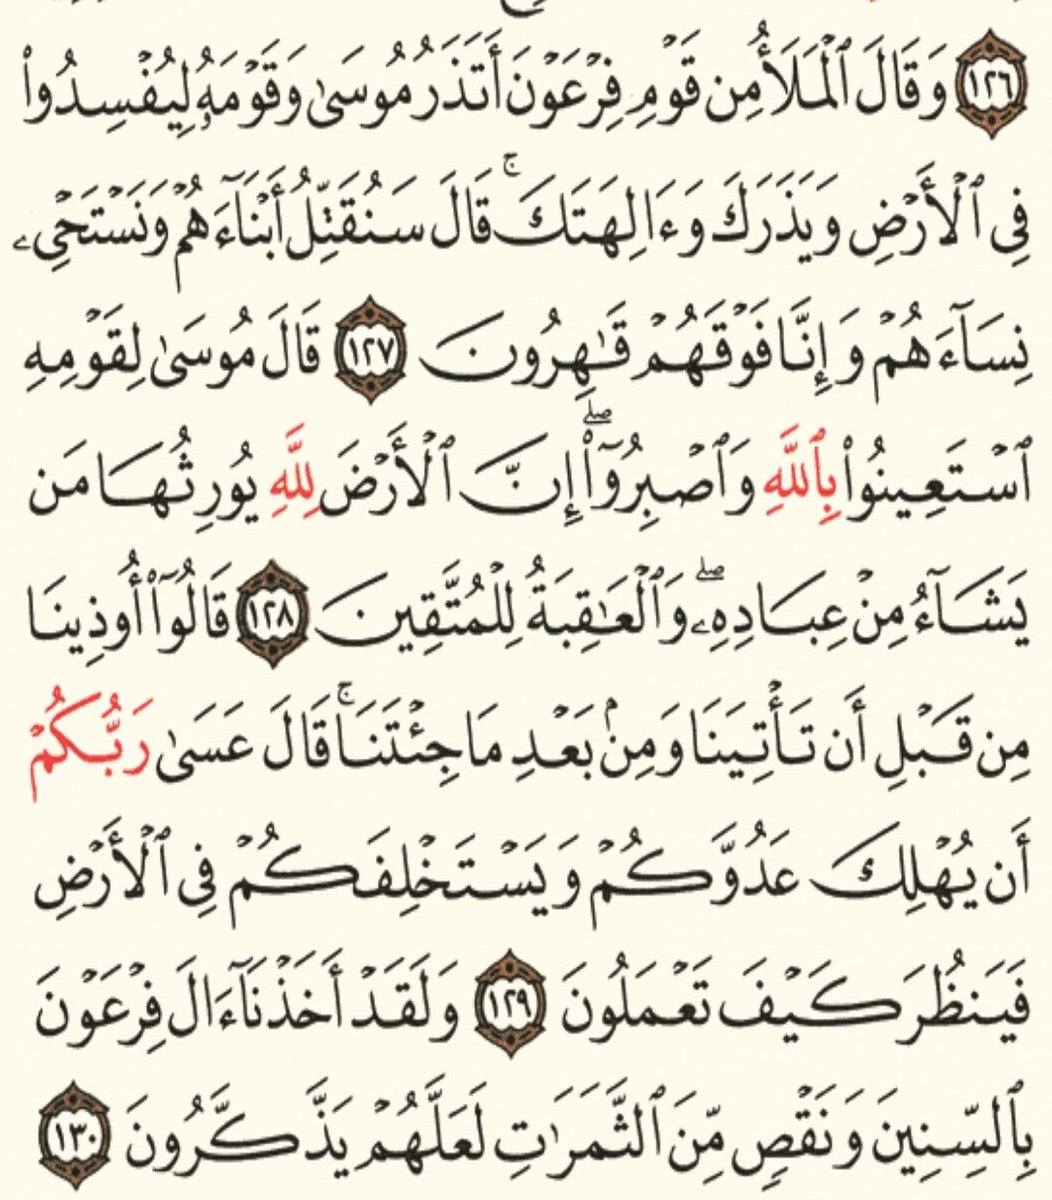 ۝١٢٦ وَقَالَ ٱلْمَلَأُ مِن قَوْمِ فِرْعَوْنَ أَتَذَرُ مُوسَىٰ وَقَوْمَهُۥ لِيُفْسِدُوا۟
فِى ٱلْأَرْضِ وَيَذَرَكَ وَءَالِهَتَكَ ۚ قَالَ سَنُقَتِّلُ أَبْنَآءَهُمْ وَنَسْتَحْىِۦ
نِسَآءَهُمْ وَإِنَّا فَوْقَهُمْ قَـٰهِرُونَ ۝١٢٧ قَالَ مُوسَىٰ لِقَوْمِهِ
ٱسْتَعِينُوا۟ بِٱللَّهِ وَٱصْبِرُوٓا۟ ۖ إِنَّ ٱلْأَرْضَ لِلَّهِ يُورِثُهَا مَن
يَشَآءُ مِنْ عِبَادِهِۦ ۖ وَٱلْعَـٰقِبَةُ لِلْمُتَّقِينَ ۝١٢٨ قَالُوٓا۟ أُوذِينَا
مِن قَبْلِ أَن تَأْتِيَنَا وَمِنۢ بَعْدِ مَا جِئْتَنَا ۚ قَالَ عَسَىٰ رَبُّكُمْ
أَن يُهْلِكَ عَدُوَّكُمْ وَيَسْتَخْلِفَكُمْ فِى ٱلْأَرْضِ
فَيَنظُرَ كَيْفَ تَعْمَلُونَ ۝١٢٩ وَلَقَدْ أَخَذْنَآ ءَالَ فِرْعَوْنَ
بِٱلسِّنِينَ وَنَقْصٍ مِّنَ ٱلثَّمَرَٰتِ لَعَلَّهُمْ يَذَّكَّرُونَ ۝١٣٠